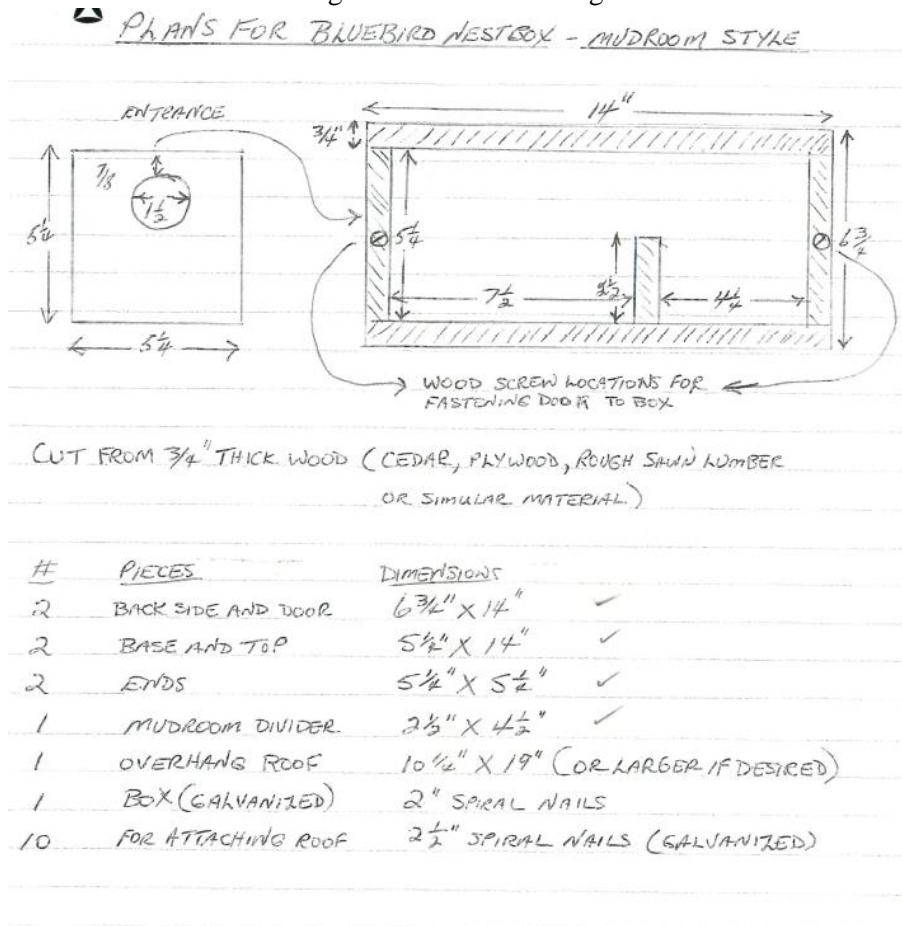 PLANS FOR BLUEBIRD NESTBOX - MUDROOM STYLE
ENTRANCE
14"
3/4"
7/8
1 1/2
5 1/4
5 1/4
5 1/4
6 3/4
7 1/2
2 1/2
4 1/4
WOOD SCREW LOCATIONS FOR
FASTENING DOOR TO BOX
CUT FROM 3/4" THICK WOOD (CEDAR, PLYWOOD, ROUGH SAWN LUMBER
OR SIMULAR MATERIAL)
# PIECES DIMENSIONS
2 BACK SIDE AND DOOR 6 3/4" X 14" ✓
2 BASE AND TOP 5 1/4" X 14" ✓
2 ENDS 5 1/4" X 5 1/4" ✓
1 MUDROOM DIVIDER 2 1/2" X 4 1/2" ✓
1 OVERHANG ROOF 10 1/4" X 19" (OR LARGER IF DESIRED)
1 BOX (GALVANIZED) 2" SPIRAL NAILS
10 FOR ATTACHING ROOF 2 1/2" SPIRAL NAILS (GALVANIZED)